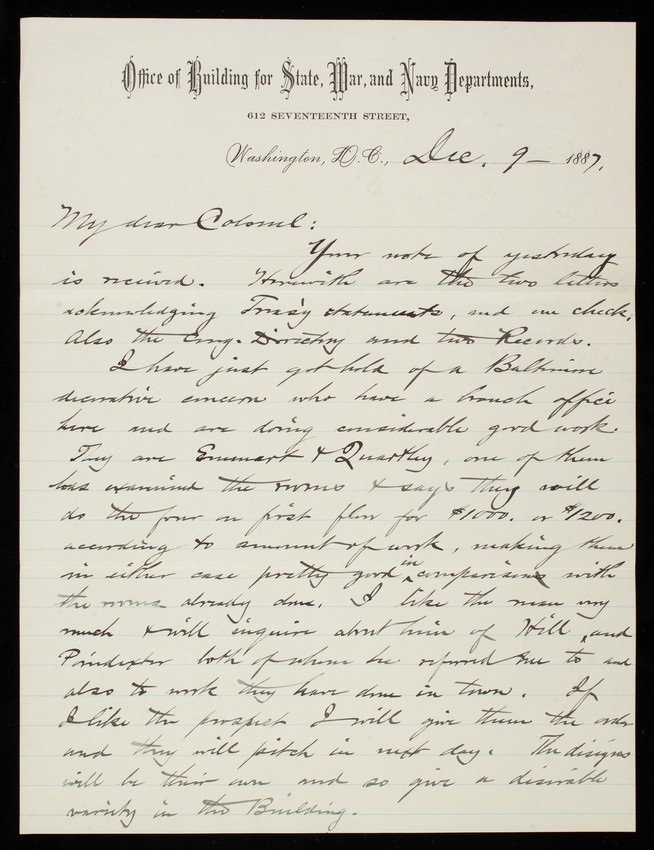 Office of Building for State, War, and Navy Departments,
612 SEVENTEENTH STREET,
Washington, D.C., Dec. 9 – 1887.
My dear Colonel:
Your note of yesterday
is received. Herewith are the two letters
acknowledging Treas'y statements, and one check;
Also the Eng. Directory and two Records.
I have just got hold of a Baltimore
decorative concern who have a branch office
here and are doing considerable good work.
They are Emmart & Quartley, one of them
has examined the rooms & says they will
do the four on first floor for $1000. or $1200.
according to amount of work, making them
in either case pretty good in comparison with
the rooms already done. I like the man very
much & will inquire about him of Hill, and
Poindexter both of whom he referred me to and
also to work they have done in town. If
I like the prospect I will give them the order
and they will pitch in next day. The designs
will be their own and so give a desirable
variety in the Building.